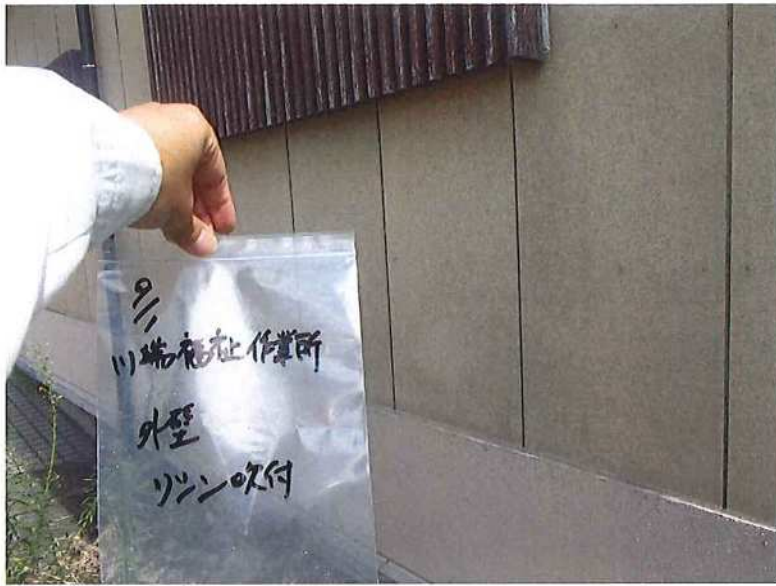 9/1
川端福祉作業所
外壁
リシン吹付